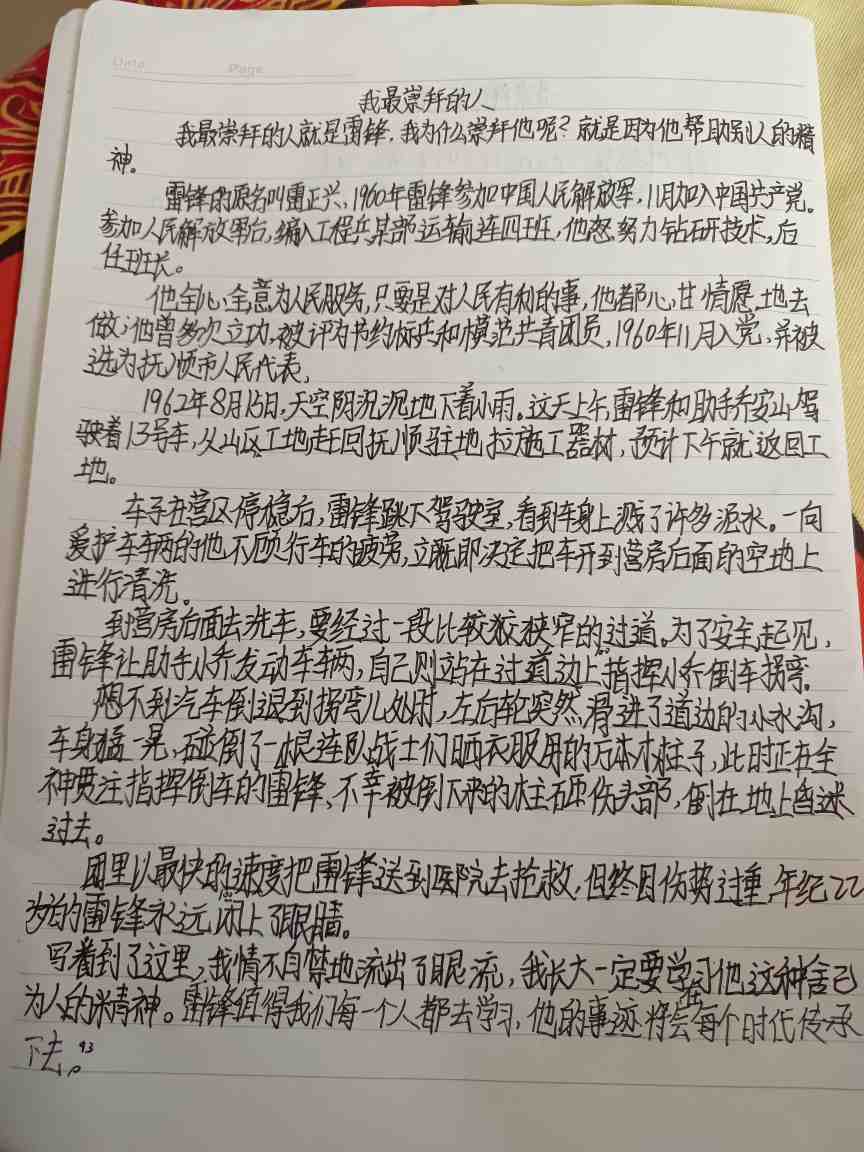 Date
Page
我最崇拜的人
我最崇拜的人就是雷锋,我为什么崇拜他呢?就是因为他帮助别人的精
神。
雷锋的原名叫雷正兴、1960年雷锋参加中国人民解放军,11月加入中国共产党。
参加人民解放军后,编入工程兵某部运输连四班,他努力钻研技术,后
任班长。
他全心全意为人民服务,只要是对人民有利的事,他都心甘情愿地去
做;他曾多次立功,被评为节约标兵和模范共青团员,1960年11月入党,并被
选为抚顺市人民代表,
1962年8月15日,天空阴沉沉地下着小雨。这天上午,雷锋和助手乔安山驾
驶着13号车,从山区工地赶回抚顺驻地拉施工器材,预计下午就返回工
地。
车子在营区停稳后,雷锋跳下驾驶室,看到车身上溅了许多泥水。一向
爱护车辆的他不顾行车的疲劳,立即决定把车开到营房后面的空地上
进行清洗。
到营房后面去洗车,要经过一段比较狭窄的过道。为了安全起见,
雷锋让助手小乔发动车辆,自己则站在过道边上指挥小乔倒车拐弯。
想不到汽车倒退到拐弯儿处时,左后轮突然滑进了道边的小水沟,
车身猛一晃,碰倒了一根连队战士们晒衣服用的方木柱子,此时正在全
神贯注指挥倒车的雷锋、不幸被倒下来的柱砸伤头部,倒在地上昏迷
过去。
团里以最快的速度把雷锋送到医院去抢救,但终因伤势过重,年纪22
岁的雷锋永远闭上了眼睛。
写看到了这里,我情不自禁地流出了眼流,我长大一定要学习他这种舍己
为人的精神。雷锋值得我们每一个人都去学习,他的事迹将会在每个时代传承
下去。93